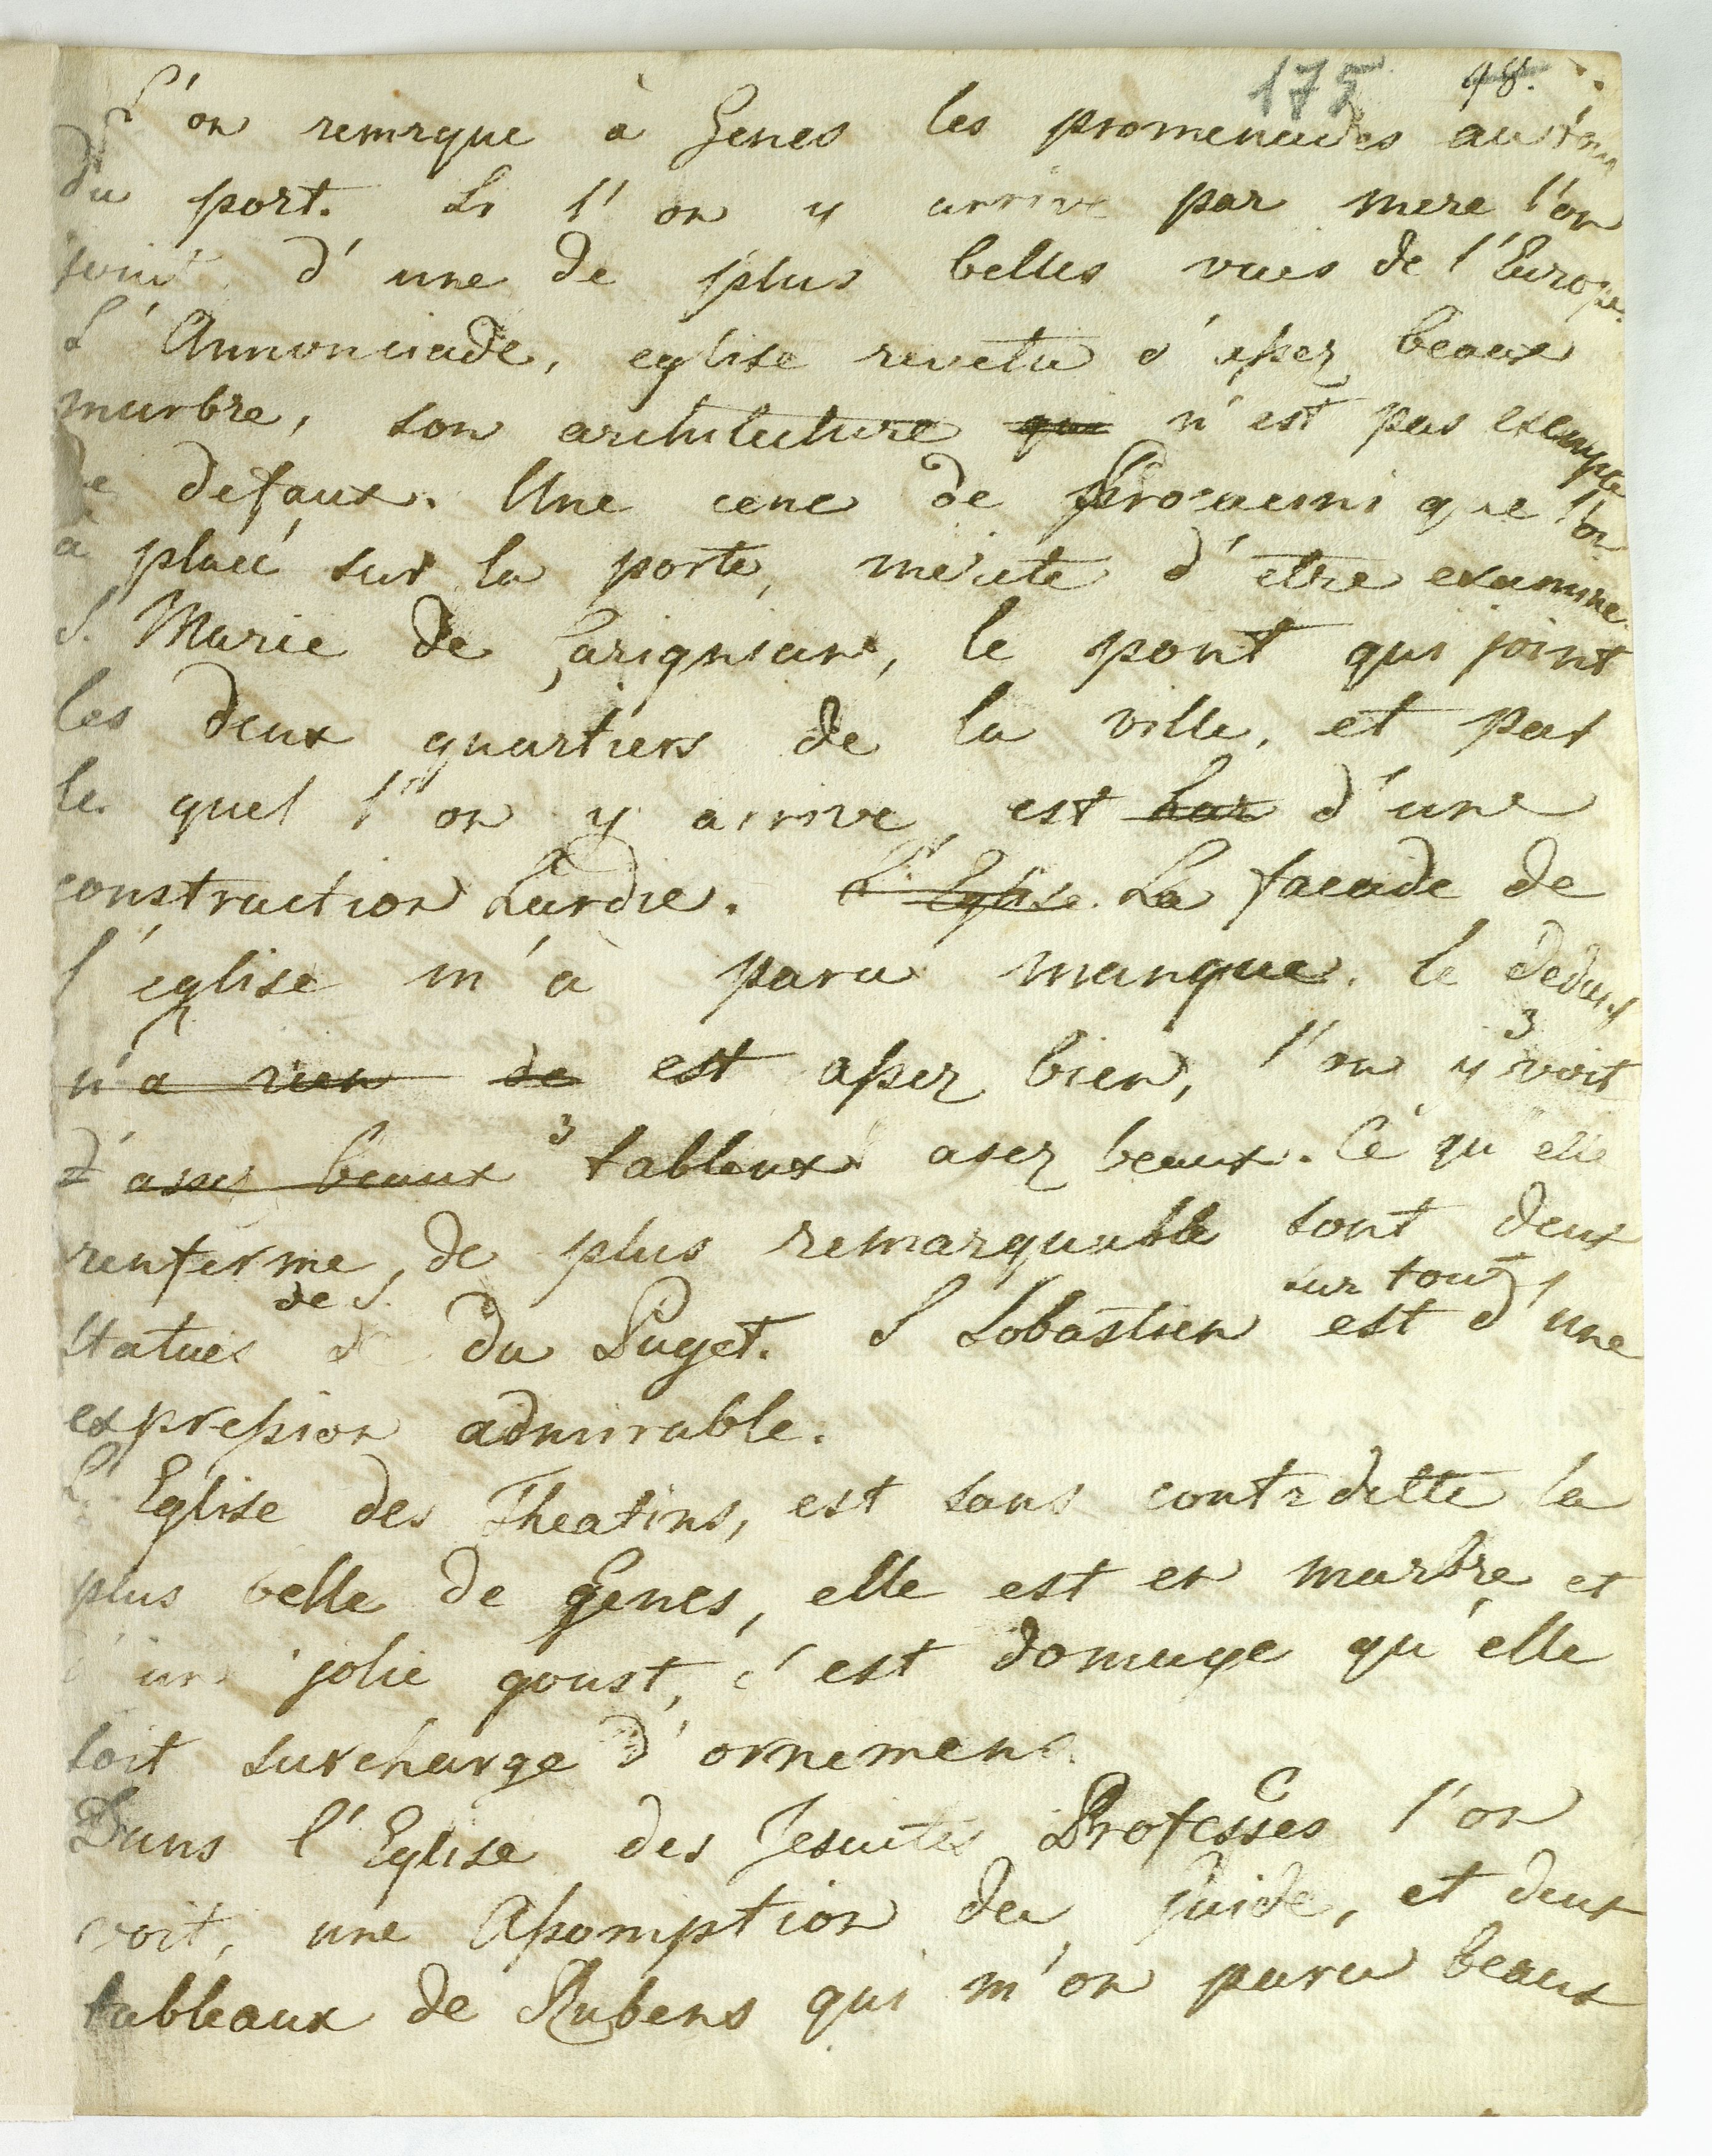 175 98.
L'on remrque à Genes les promenades
du port. Si l'on y arrive par mere l'on
jouit d'une de plus belles vues de l'Europe.
L'Annonciade, eglise revetu d'assez beaux
marbre, son architecture qui n'est pas exempte
de defaux. Une cene de Procacini que l'on
a placé sur la porte, mérite d'etre examine.
S. Marie de Carignian, le pont qui joint
les deux quartiers de la ville, et par
le quel l'on y arrive, est har d'une
construction hardie. L'Eglise. La facade de
l'église m'a paru manque. le dedans
n'a rien de est assez bien, l'on y voit 3
d'assez beaux 3 tableaux asez beaux. Ce qu'elle
renferme, de plus remarquable sont deux
statues de S. du Puget. S Sobastien sur tout est d'une
expression admirable.
L'Eglise des Theatins, est sans contrditte la
plus belle de Genes, elle est en marbre et
d'une jolie goust, c'est domage qu'elle
soit surcharge d'ornemens.
Dans l'Eglise des Jesuites Professes l'on
voit, une Assomption du Guide, et deux
tableaux de Rubens qui m'on paru beaux